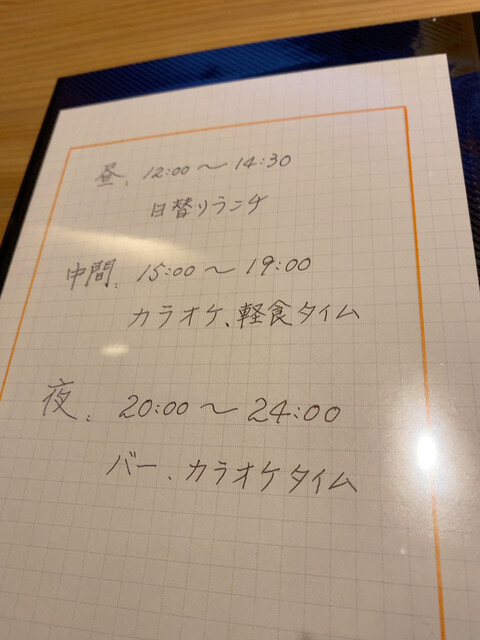 昼: 12:00〜14:30
日替りランチ
中間: 15:00〜19:00
カラオケ、軽食タイム
夜: 20:00〜24:00
バー、カラオケタイム